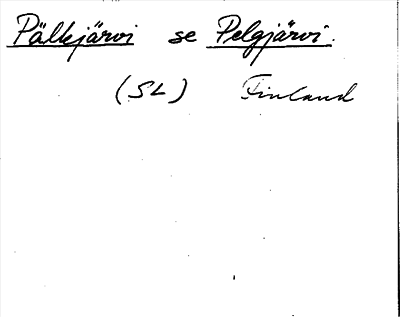 Pälkjärvi se Pelgjärvi.
(SL) Finland